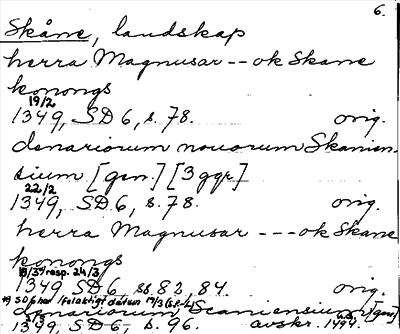 6.
Skåne, landskap
herra Magnusar -- ok Skane
konongs
19/2
1349, SD 6, s. 78. orig.
denariorum nouorum Skanien-
sium [gen.] [3 ggr]
22/2
1349, SD 6, s. 78. orig.
herra Magnusar --- ok Skane
konongs
resp. 24/3
1349 SD 6 ss 82, 84. orig.
felaktigt datum
denariorum Scaniensium [gen]
1349, SD 6, s. 96. avskr. 1494.